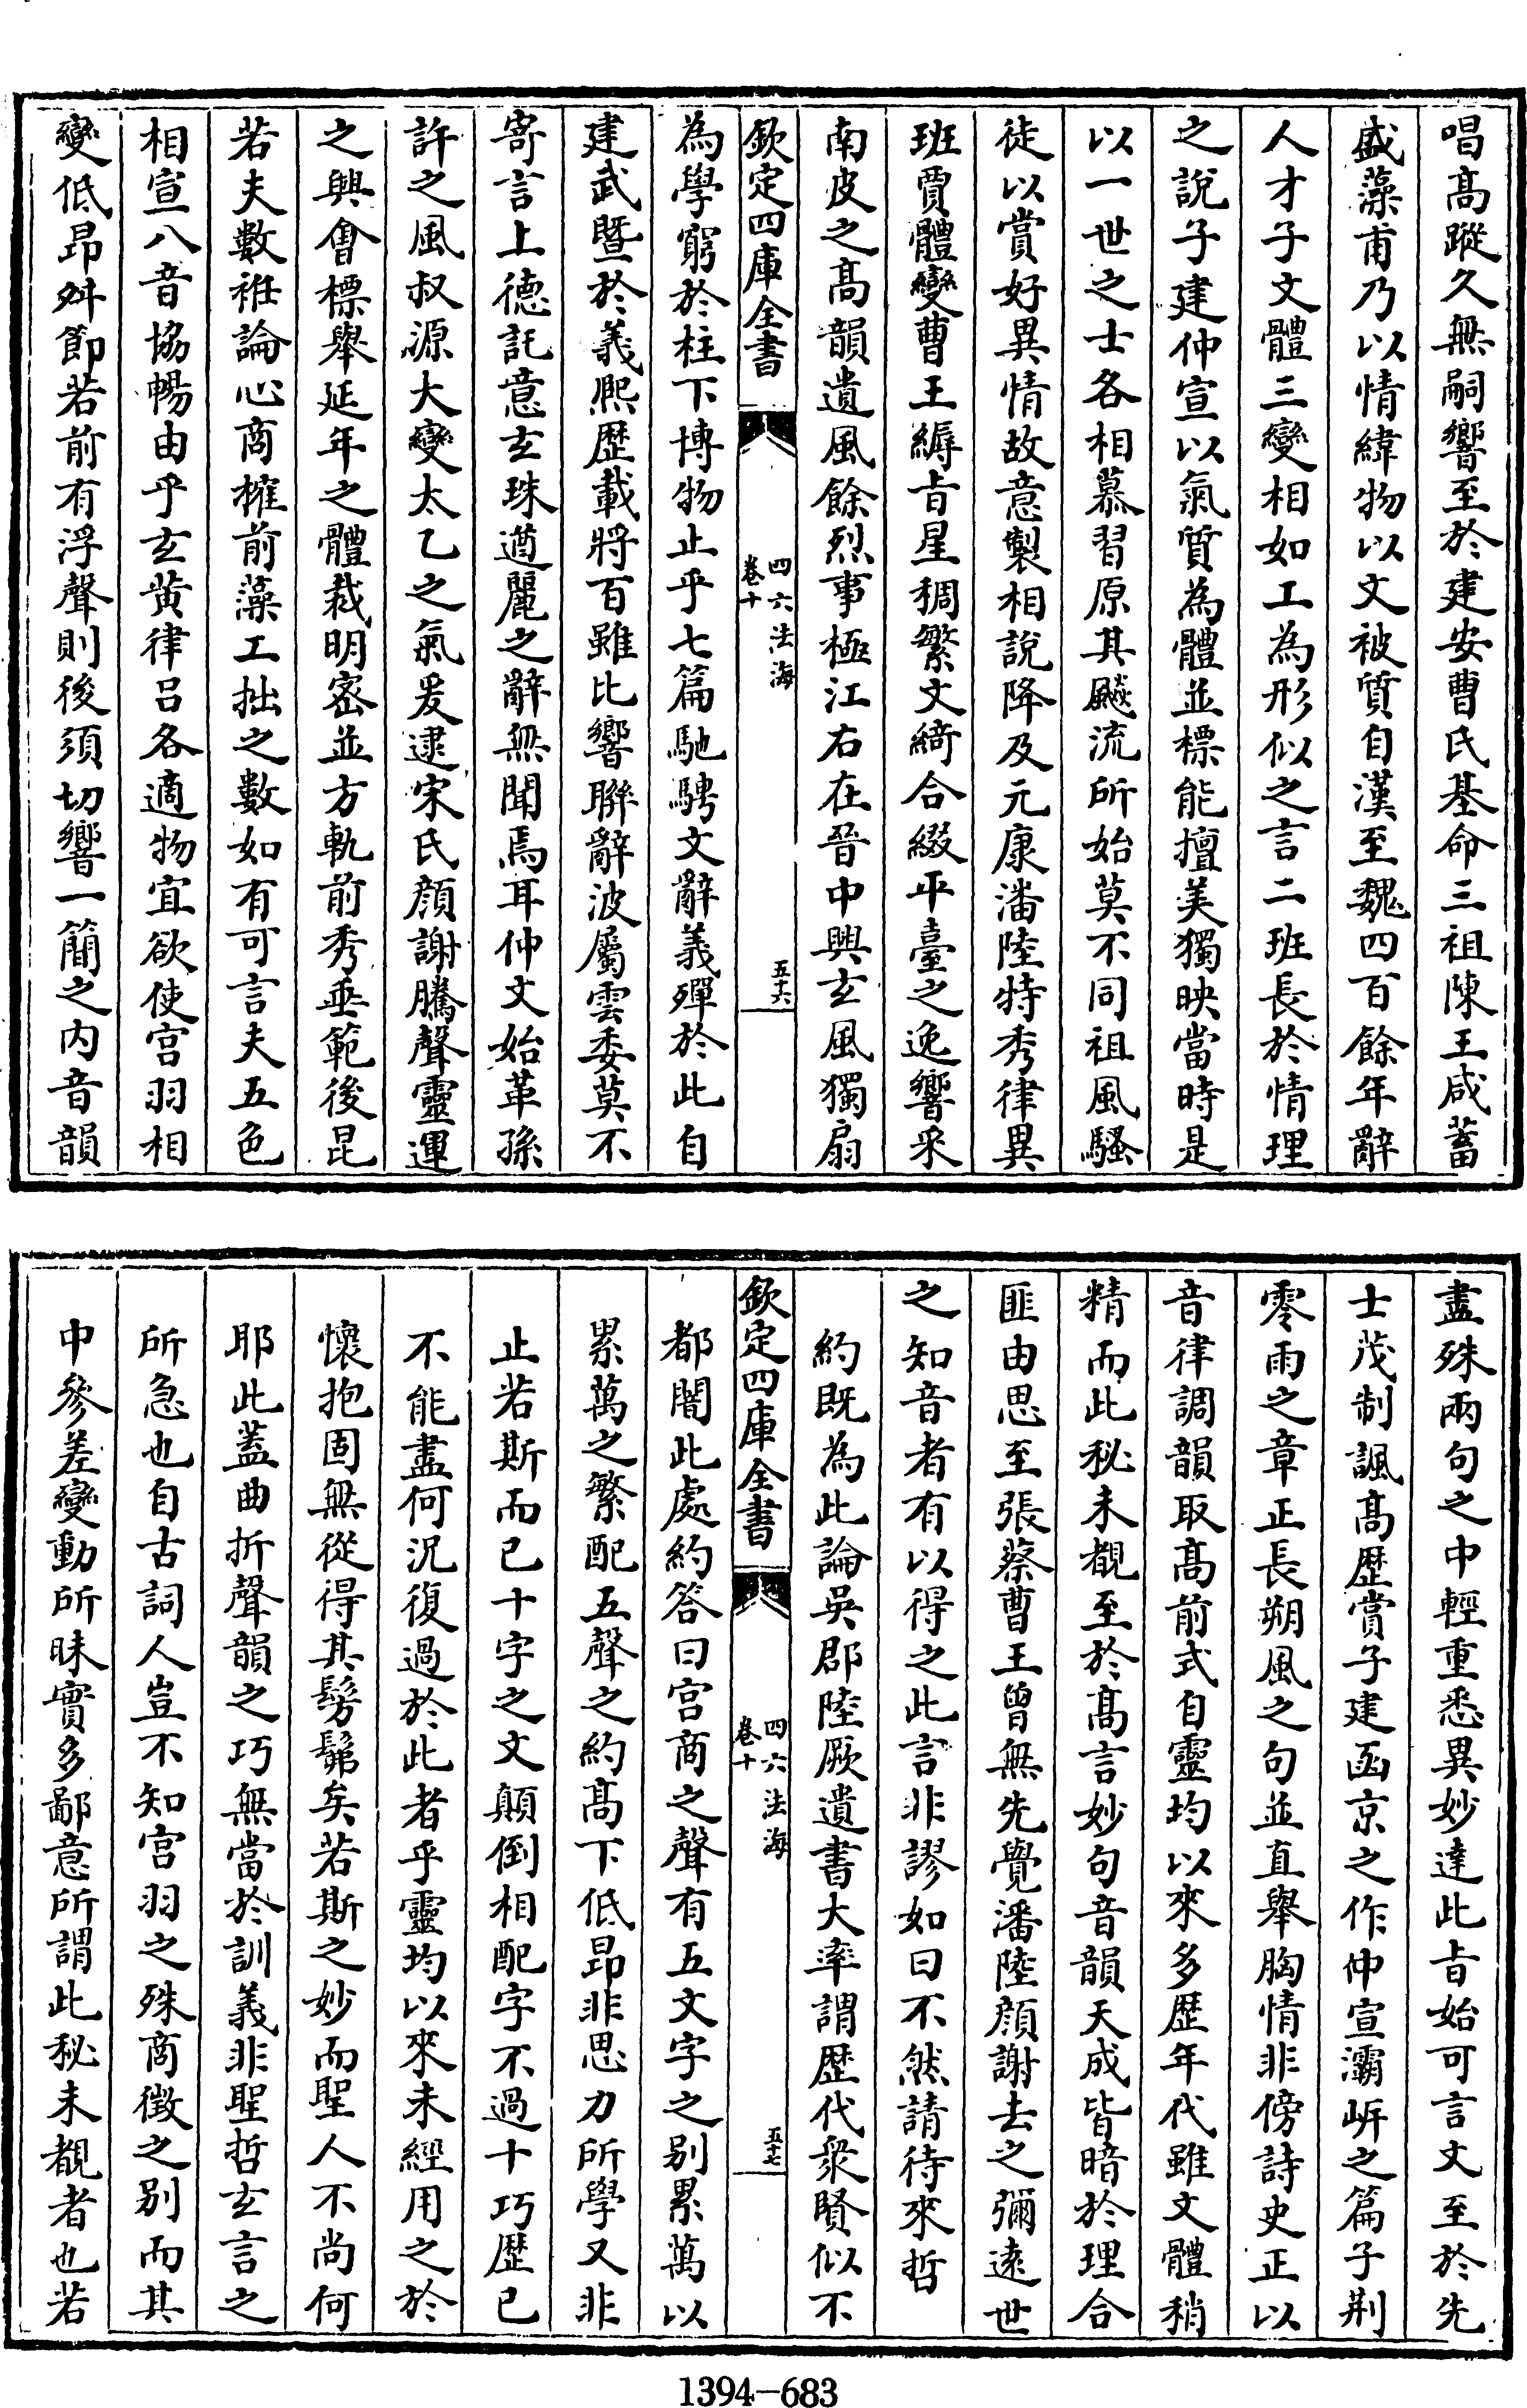 唱髙蹤久無嗣響至於建安曹氏基命三祖陳王咸蓄
盛藻甫乃以情緯物以文被質自漢至魏四百餘年辭
人才子文體三變相如工為形似之言二班長於情理
之說子建仲宣以氣質為體並標能擅美獨映當時是
以一世之士各相慕習原其飈流所始莫不同祖風騷
徒以賞好異情故意製相說降及元康潘陸特秀律異
班賈體變曹王縟旨星稠繁文綺合綴平臺之逸響采
南皮之髙韻遺風餘烈事極江右在晉中興玄風獨扇
欽定四庫全書
四六法海
卷十
五十六
為學窮於柱下博物止乎七篇馳騁文辭義殫於此自
建武暨於義熙歴載將百雖比響聨辭波屬雲委莫不
寄言上德託意玄珠遒麗之辭無聞焉耳仲文始革孫
許之風叔源大變太乙之氣爰逮宋氏顔謝騰聲靈運
之興㑹標舉延年之體裁明密並方軌前秀垂範後昆
若夫數袵論心商搉前藻工拙之數如有可言夫五色
相宣八音協暢由乎玄黄律吕各適物宜欲使宫羽相
變低昻舛節若前有浮聲則後須切響一簡之内音韻
盡殊兩句之中輕重悉異妙達此旨始可言文至於先
士茂制諷髙歴賞子建函京之作仲宣灞岍之篇子荆
零雨之章正長朔風之句並直舉胸情非傍詩史正以
音律調韻取髙前式自靈均以來多歴年代雖文體稍
精而此秘未覩至於髙言妙句音韻天成皆暗於理合
匪由思至張蔡曹王曾無先覺潘陸顔謝去之彌逺世
之知音者有以得之此言非謬如曰不然請待來哲
約既為此論吳郡陸厥遺書大率謂歴代衆賢似不
欽定四庫全書
四六法海
卷十
五十七
都闇此處約答曰宫商之聲有五文字之别累萬以
累萬之繁配五聲之約髙下低昻非思力所學又非
止若斯而已十字之文顛倒相配字不過十巧歴已
不能盡何況復過於此者乎靈均以來未經用之於
懷抱固無從得其髣髴矣若斯之妙而聖人不尚何
耶此蓋曲折聲韻之巧無當於訓義非聖哲玄言之
所急也自古詞人豈不知宫羽之殊商徵之别而其
中參差變動所昧實多鄙意所謂此秘未覩者也若
1394-683